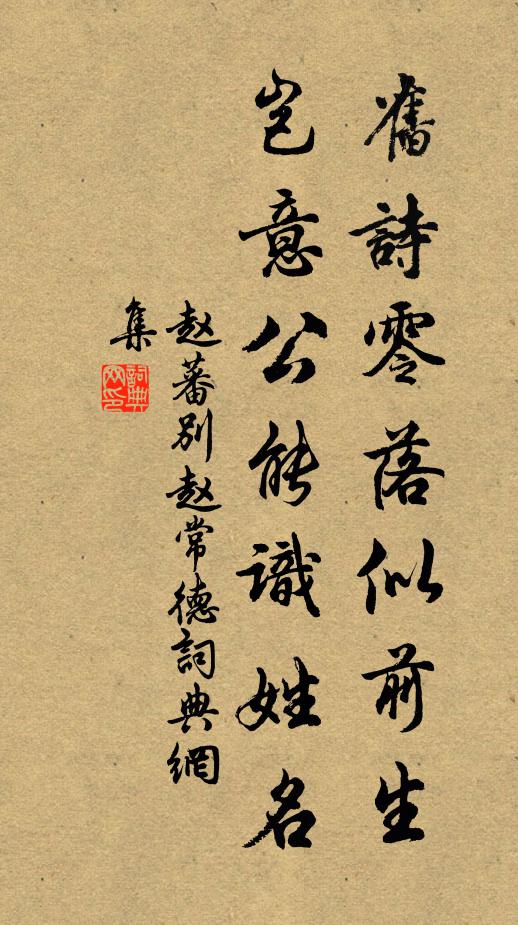 舊詩零落似前生
豈意公能識姓名
赵蕃別赵常德詞典網
集
詞典網印